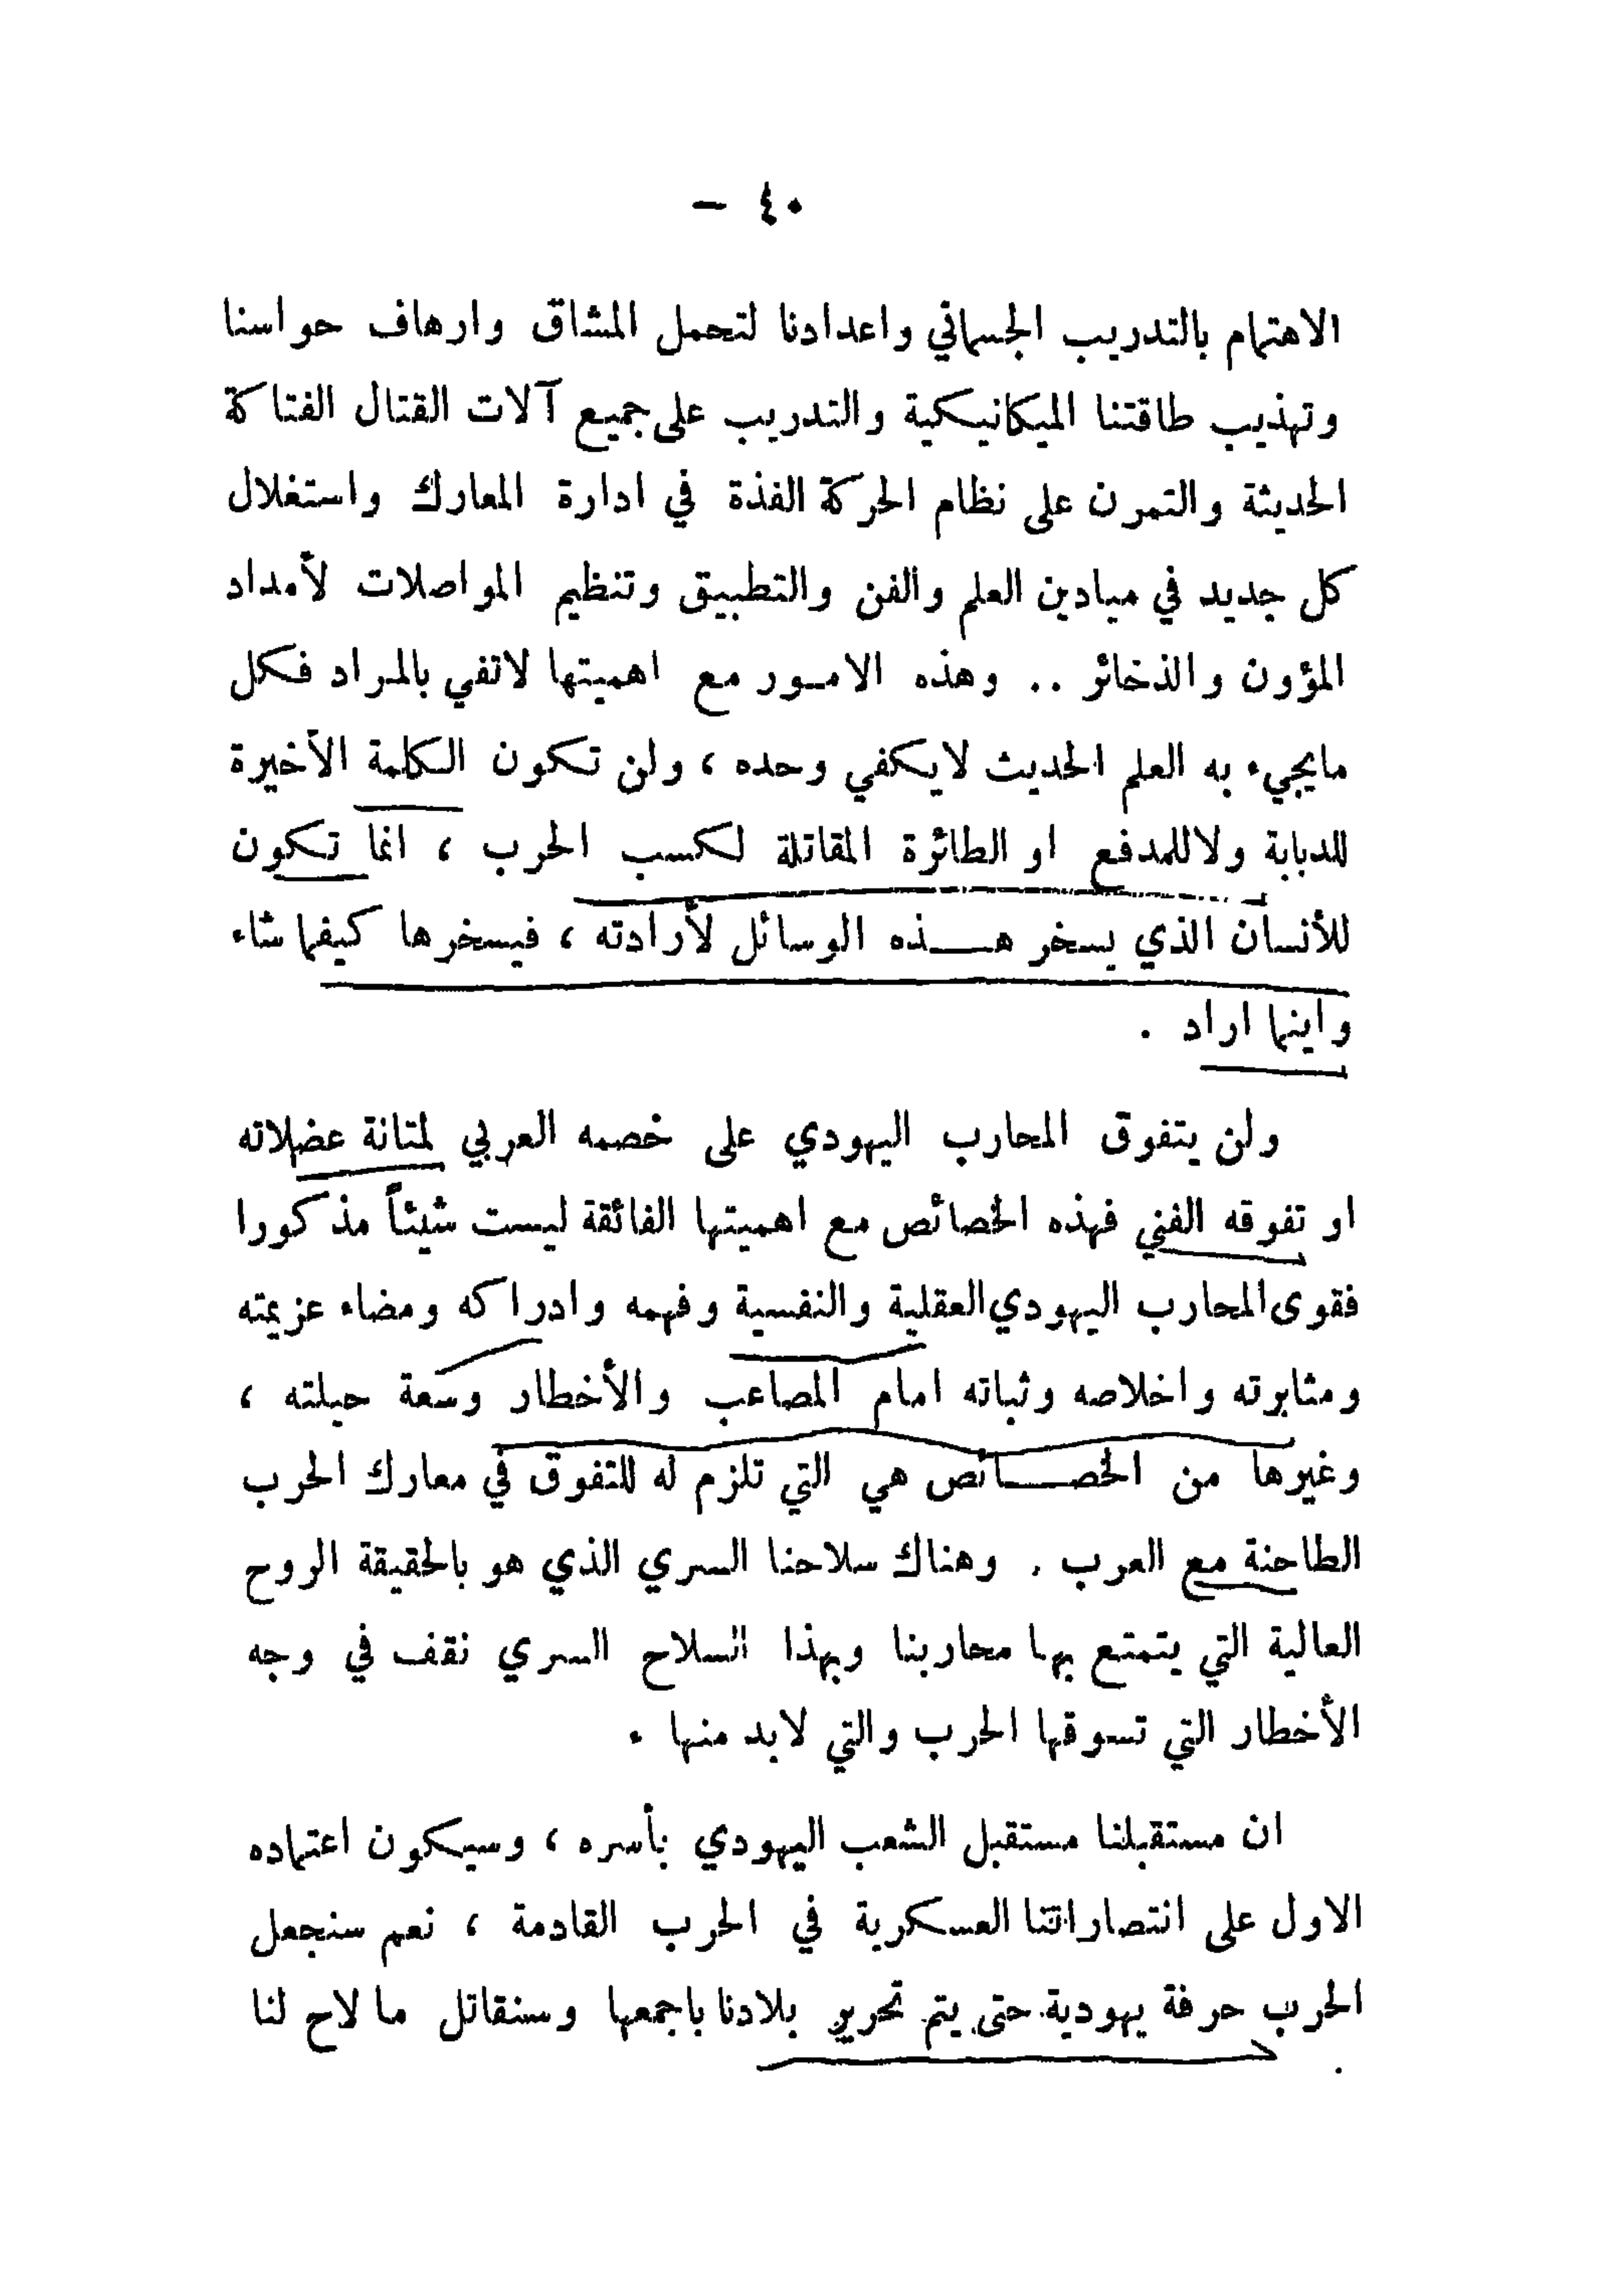 ٤٠ —
الاهتمام بالتدريب الجسماني واعدادنا لتحمل المشاق وارهاف حواسنا
وتهذيب طاقتنا الميكانيكية والتدريب على جميع آلات القتال الفتاكة
الحديثة والتمرن على نظام الحركة الفذة في ادارة المعارك واستغلال
كل جديد في ميادين العلم والفن والتطبيق وتنظيم المواصلات لأمداد
المؤون والذخائر .. وهذه الامور مع اهميتها لاتفي بالمراد فكل
مايجيء به العلم الحديث لايكفي وحده ، ولن تكون الكلمة الأخيرة
للدبابة ولاللمدفع او الطائرة المقاتلة لكسب الحرب ، انما تكون
للأنسان الذي يسخر هذه الوسائل لأرادته ، فيسخرها كيفما شاء
واينما اراد .
ولن يتفوق المحارب اليهودي على خصمه العربي لمتانة عضلاته
او تفوقه الفني فهذه الخصائص مع اهميتها الفائقة ليست شيئاً مذكورا
فقوى المحارب اليهودي العقلية والنفسية وفهمه وادراكه ومضاء عزيمته
ومثابرته واخلاصه وثباته امام المصاعب والأخطار وسعة حيلته ،
وغيرها من الخصائص هي التي تلزم له للتفوق في معارك الحرب
الطاحنة مع العرب . وهناك سلاحنا السري الذي هو بالحقيقة الروح
العالية التي يتمتع بها محاربنا وبهذا السلاح السري نقف في وجه
الأخطار التي تسوقها الحرب والتي لابد منها .
ان مستقبلنا مستقبل الشعب اليهودي بأسره ، وسيكون اعتماده
الاول على انتصاراتنا العسكرية في الحرب القادمة ، نعم سنجعل
الحرب حرفة يهودية حتى يتم تحرير بلادنا باجمعها وسنقاتل ما لاح لنا